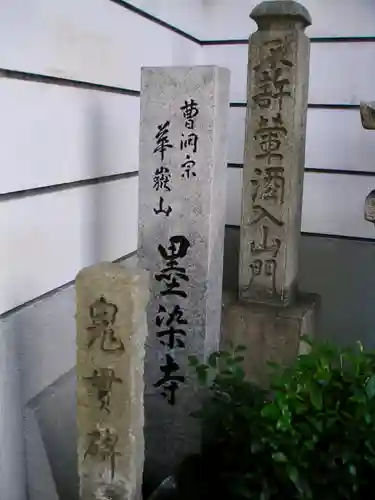 不許葷酒入山門
曹洞宗
華嶽山
墨染寺
鬼貫碑